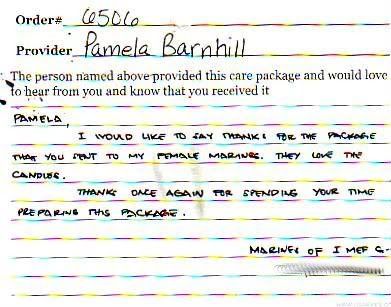 Order# 6506
Provider Pamela Barnhill
The person named above provided this care package and would love
to hear from you and know that you received it
PAMELA,
I WOULD LIKE TO SAY THANKS FOR THE PACKAGE
THAT YOU SENT TO MY FEMALE MARINES. THEY LOVE THE
CANDLES.
THANKS ONCE AGAIN FOR SPENDING YOUR TIME
PREPARING THIS PACKAGE.
MARINES OF I MEF G-